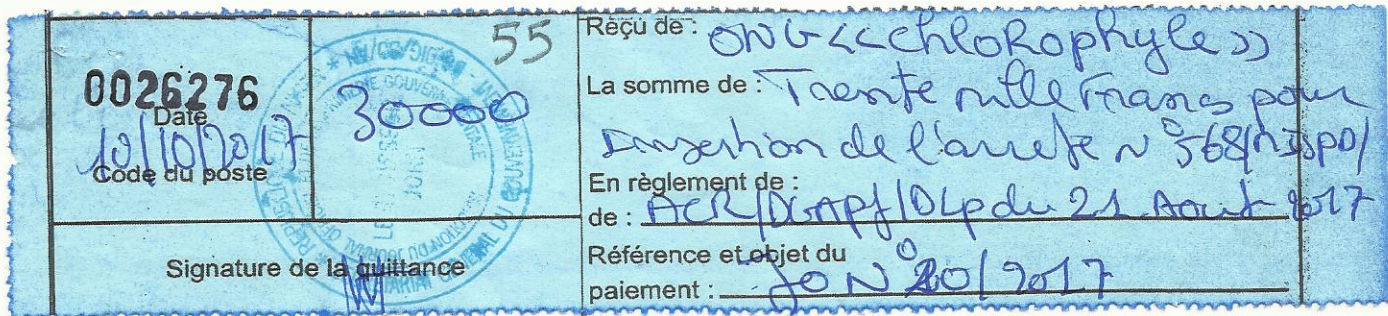 55
0026276
Date
10/10/2017
Code du poste
30000
Signature de la quittance
Reçu de : ONG << Chlorophyle >>
La somme de : Trente mille Francs pour
Insertion de l'arrete N° 568/MISPD/
En règlement de :
de : ACR/DGAPJ/DLP du 21 Aout 2017
Référence et objet du
paiement : JO N° 20/2017